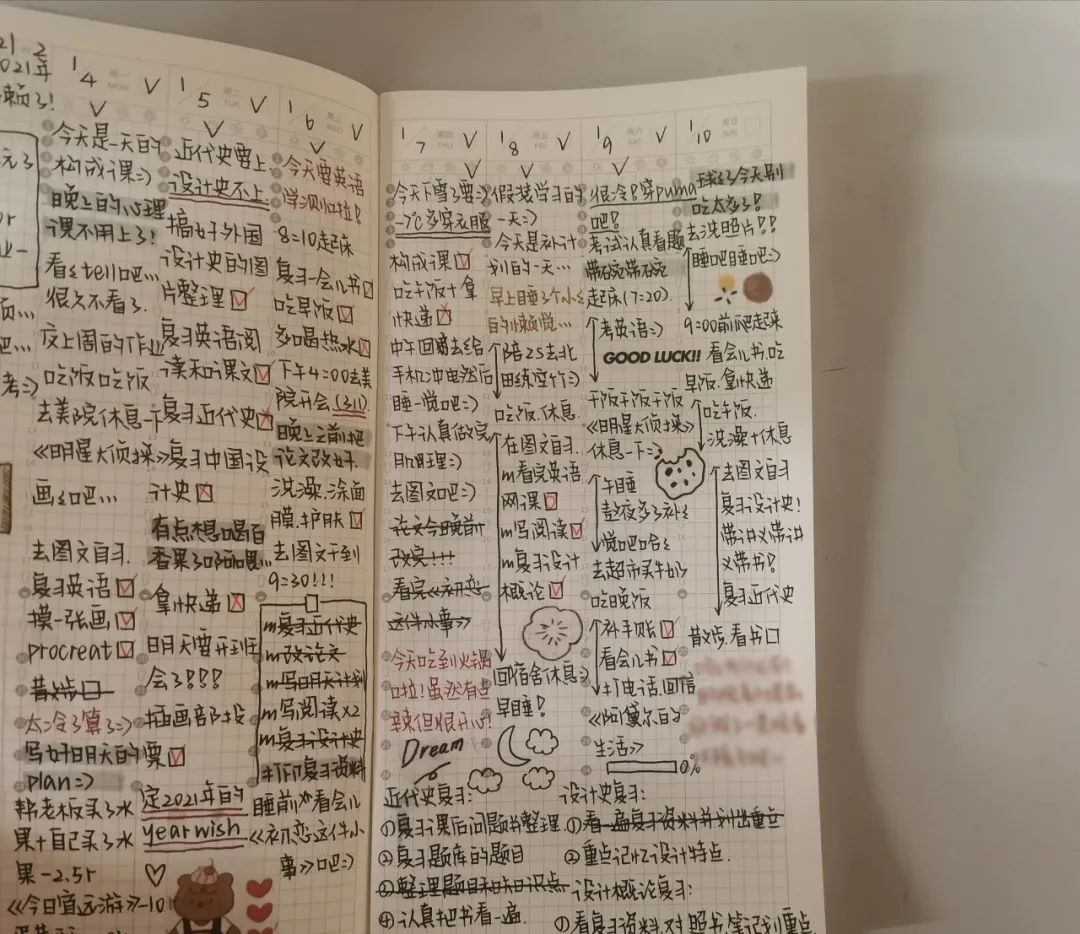 21 2
021年
赖了!
1/4 周一 MON ✓
今天是一天的
构成课=)
晚上的心理
课不用上了!
看《tell吧...
很久不看了.
交上周的作业
吃饭吃饭
去美院休息一下
《明星大侦探》
画画吧...
去图文自习.
复习英语
摸一张画
procreat
普拉提
太冷了算了=)
写好明天的
plan=)
帮老板买了水
果+自己买了水
果-2.5r
《今日宜远游》-10
1/5 周二 TUE ✓
近代史要上
设计史不上
搞好外国
设计史的图
片整理
复习英语阅
读和课文
复习近代史
复习中国设
计史
有点想喝百
香果了呜呜喂...
拿快递
明天要开班
会了!!!
插画部投
票
定2021年的
year wish
1/6 周三 WED ✓
今天要英语
学测啦!
8:10起床
复习一会儿书
吃早饭
多喝热水
下午4:00去美
院开会.(311)
晚上之前把
论文改好.
洗澡.涂面
膜.护肤
去图文干到
9:30!!!
m复习近代史
m改论文
m写明天计划
m写阅读x2
m复习设计史
打印复习资料
睡前看会儿
《初恋这件小
事》吧=)
1/7 周四 THU ✓
今天下雪了耍=)
-7℃多穿衣服
构成课
吃午饭+拿
快递
中午回寝去给
手机冲电然后
睡一觉吧=)
下午认真做完
肌理=)
去图文吧=)
论文今晚前
改完!!!
看完《初恋
这件小事》
今天吃到火锅
啦!虽然有点
辣但很开心!
Dream
1/8 周五 FRI ✓
假装学习的
一天=)
今天是补计
划的一天...
早上睡了个小小
的懒觉...
陪2S去北
田练空竹=)
吃饭.休息
在图文自习.
m看完英语
网课
m写阅读
m复习设计
概论
回宿舍休息=)
早睡!
1/9 周六 SAT ✓
很冷!穿puma
吧!
考试认真看题
带碗带碗
起床(7:20).
考英语=)
GOOD LUCK!!
干饭干饭干饭
《明星大侦探》
休息一下=)
午睡
熬夜多了补个
觉吧哈哈
去超市买牛奶
吃晚饭
补手账
看会儿书
打电话.回信
《阿黛尔的
生活》
0%
1/10 周日 SUN
球球了今天别
吃太多了!
去洗照片!!
睡吧睡吧=)
9:00前爬起来
看会儿书.吃
早饭.拿快递
吃午饭.
洗澡+休息
去图文自习
复习设计史!
带讲义带讲
义带书!
复习近代史
散步.看书
近代史复习:
①复习课后问题书整理
②复习题库的题目
③整理题目和知识点
④认真把书看一遍.
设计史复习:
①看一遍复习资料并划出重点
②重点记忆设计特点.
设计概论复习:
①看复习资料.对照书.笔记划重点